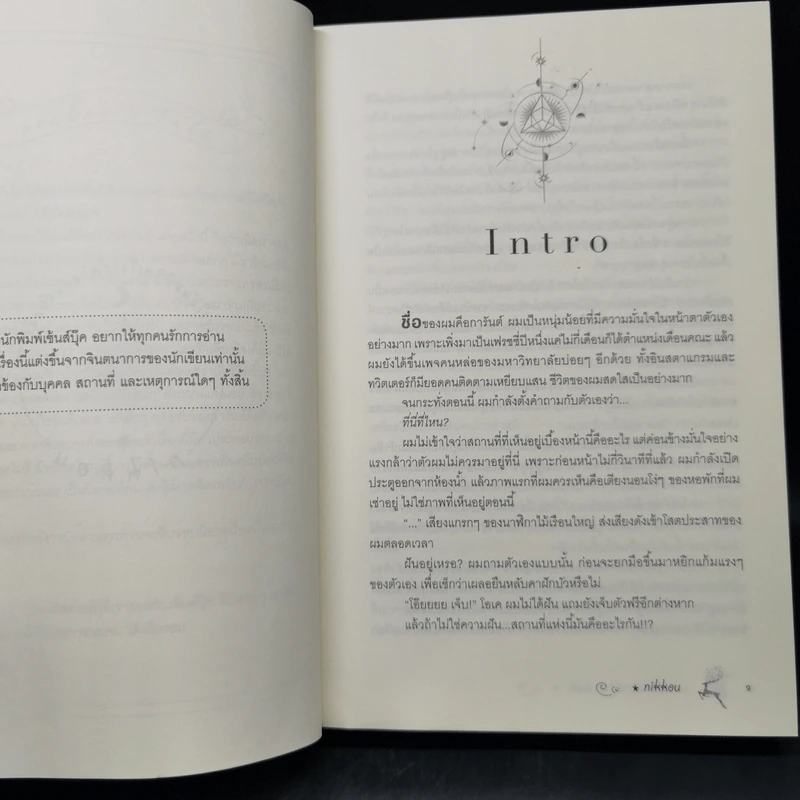 นักพิมพ์เซ้นส์บุ๊ค อยากให้ทุกคนรักการอ่าน
รื่องนี้แต่งขึ้นจากจินตนาการของนักเขียนเท่านั้น
ข้องกับบุคคล สถานที่ และเหตุการณ์ใดๆ ทั้งสิ้น
Intro
ชื่อของผมคือการันต์ ผมเป็นหนุ่มน้อยที่มีความมั่นใจในหน้าตาตัวเอง
อย่างมาก เพราะเพิ่งมาเป็นเฟรชชี่ปีหนึ่งแค่ไม่กี่เดือนก็ได้ตำแหน่งเดือนคณะ แล้ว
ผมยังได้ขึ้นเพจคนหล่อของมหาวิทยาลัยบ่อยๆ อีกด้วย ทั้งอินสตาแกรมและ
ทวิตเตอร์ก็มียอดคนติดตามเหยียบแสน ชีวิตของผมสดใสเป็นอย่างมาก
จนกระทั่งตอนนี้ ผมกำลังตั้งคำถามกับตัวเองว่า...
ที่นี่ที่ไหน?
ผมไม่เข้าใจว่าสถานที่ที่เห็นอยู่เบื้องหน้านี้คืออะไร แต่ค่อนข้างมั่นใจอย่าง
แรงกล้าว่าตัวผมไม่ควรมาอยู่ที่นี่ เพราะก่อนหน้าไม่กี่วินาทีที่แล้ว ผมกำลังเปิด
ประตูออกจากห้องน้ำ แล้วภาพแรกที่ผมควรเห็นคือเตียงนอนโง่ๆ ของหอพักที่ผม
เช่าอยู่ ไม่ใช่ภาพที่เห็นอยู่ตอนนี้
“...” เสียงแกรกๆ ของนาฬิกาไม้เรือนใหญ่ ส่งเสียงดังเข้าโสตประสาทของ
ผมตลอดเวลา
ฝันอยู่เหรอ? ผมถามตัวเองแบบนั้น ก่อนจะยกมือขึ้นมาหยิกแก้มแรงๆ
ของตัวเอง เพื่อเช็กว่าเผลอยืนหลับคาฝักบัวหรือไม่
“โอ๊ยยยย เจ็บ!” โอเค ผมไม่ได้ฝัน แถมยังเจ็บตัวฟรีอีกต่างหาก
แล้วถ้าไม่ใช่ความฝัน...สถานที่แห่งนี้มันคืออะไรกัน!!?
★ nikkou